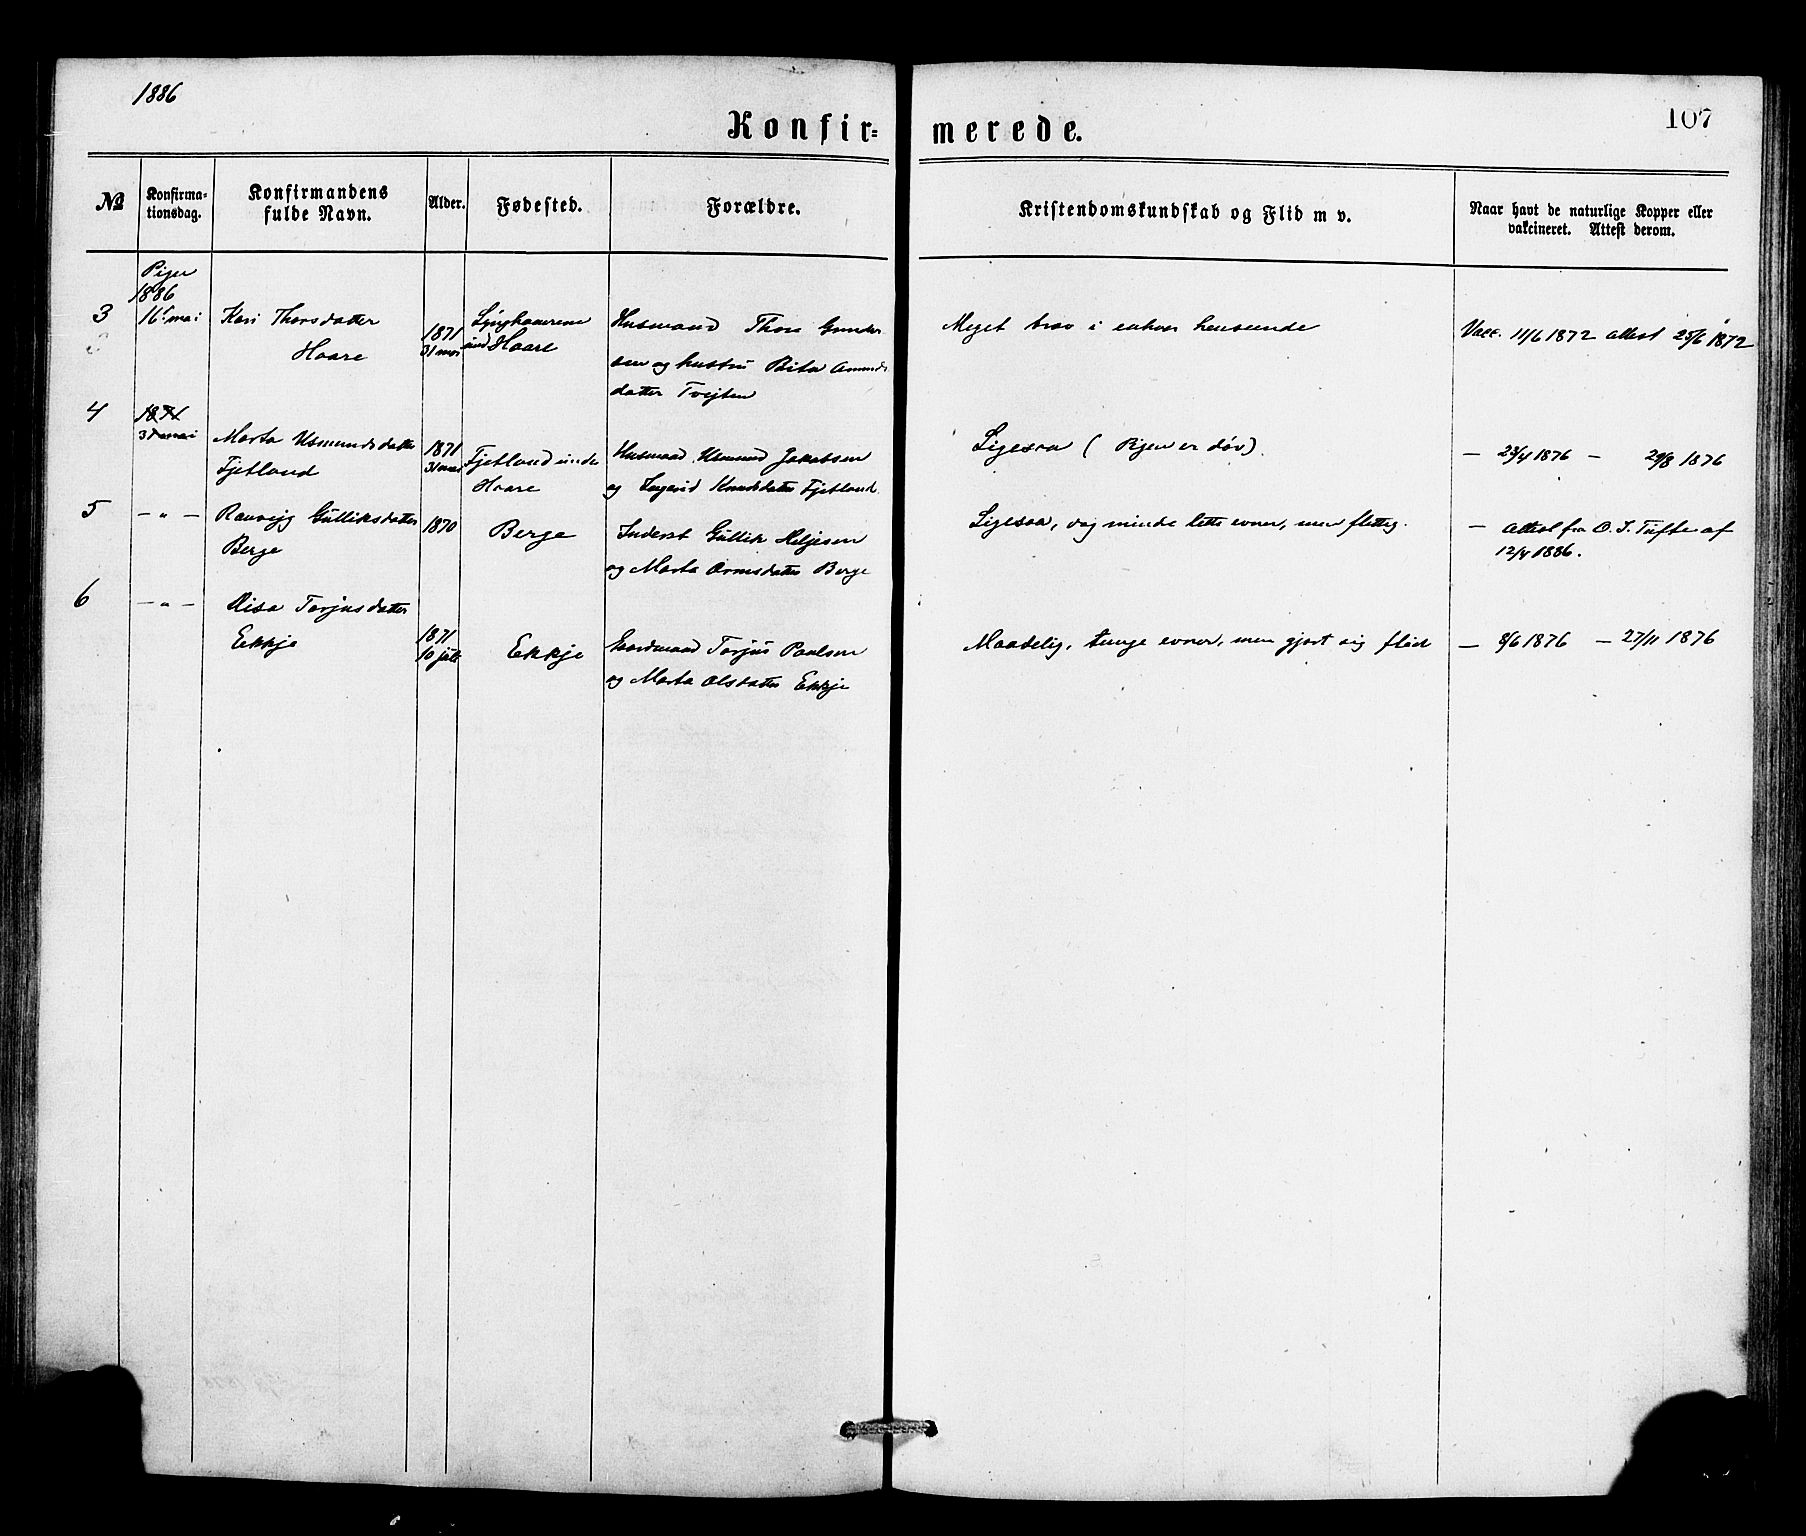 1886
Konfir= merede.
107
№ Konfirma-tionsdag. Konfirmandens fulde Navn. Alder. Fødested. Forældre. Kristendomskundskab og Flid m v. Naar havt de naturlige Kopper eller vakcineret. Attest derom.
Piger
1886
3 16. mai Kari Thorsdatter
Haare
1871
31 mai
Haare
Husmand Thor Gunder
sen og hustru Brita Amunds
datter Tvejten
Meget brav i enhver henseende
Vacc. 11/6 1872 attest 25/6 1872
4 1871
31 mai
Marta Asmundsdatter
Fjetland
1871
31 mai
Fjetland under
Haare
Husmand Asmund Jakobsen
og Ingerid Knudsdatter Fjetland
Ligesaa (Pigen er døv).
— 23/4 1876 — 29/8 1876
5 — " — Ranveig Gulliksdatter
Berge
1870
Berge
Inderst Gullik Heljesen
og Marta Ormsdatter Berge
Ligesaa, dog mindre lette evner, men flittig.
— Attest fra O. T. Tufte af
12/4 1886.
6 — " — Aisa Torjusdatter
Ekkje
1871
10 juli
Ekkje
Gaardmand Torjus Paulsen
og Marta Olsdatter Ekkje
Maadelig, tunge evner, men gjort sig flid
— 8/6 1876 — 27/11 1876